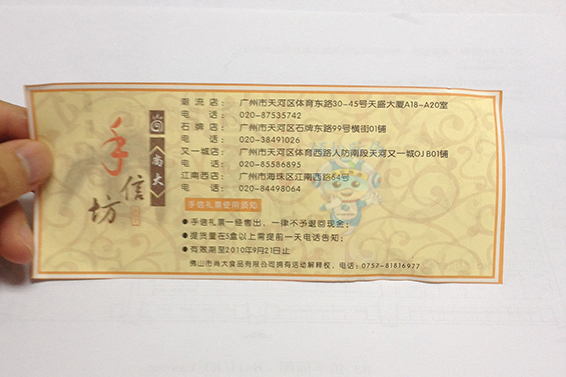 手信坊
尚大
潮流店： 广州市天河区体育东路30-45号天盛大厦A18-A20室
电话： 020-87535742
石牌店： 广州市天河区石牌东路99号横街01铺
电话： 020-38491026
又一城店： 广州市天河区体育西路人防南段天河又一城OJ B01铺
电话： 020-85586895
江南西店： 广州市海珠区江南西路64号
电话： 020-84498064
手信礼票使用须知
●手信礼票一经售出，一律不予退回现金；
●提货量在5盒以上需提前一天电话告知；
●有效期至2010年9月21日止
佛山市尚大食品有限公司拥有活动解释权，电话：0757-81816977